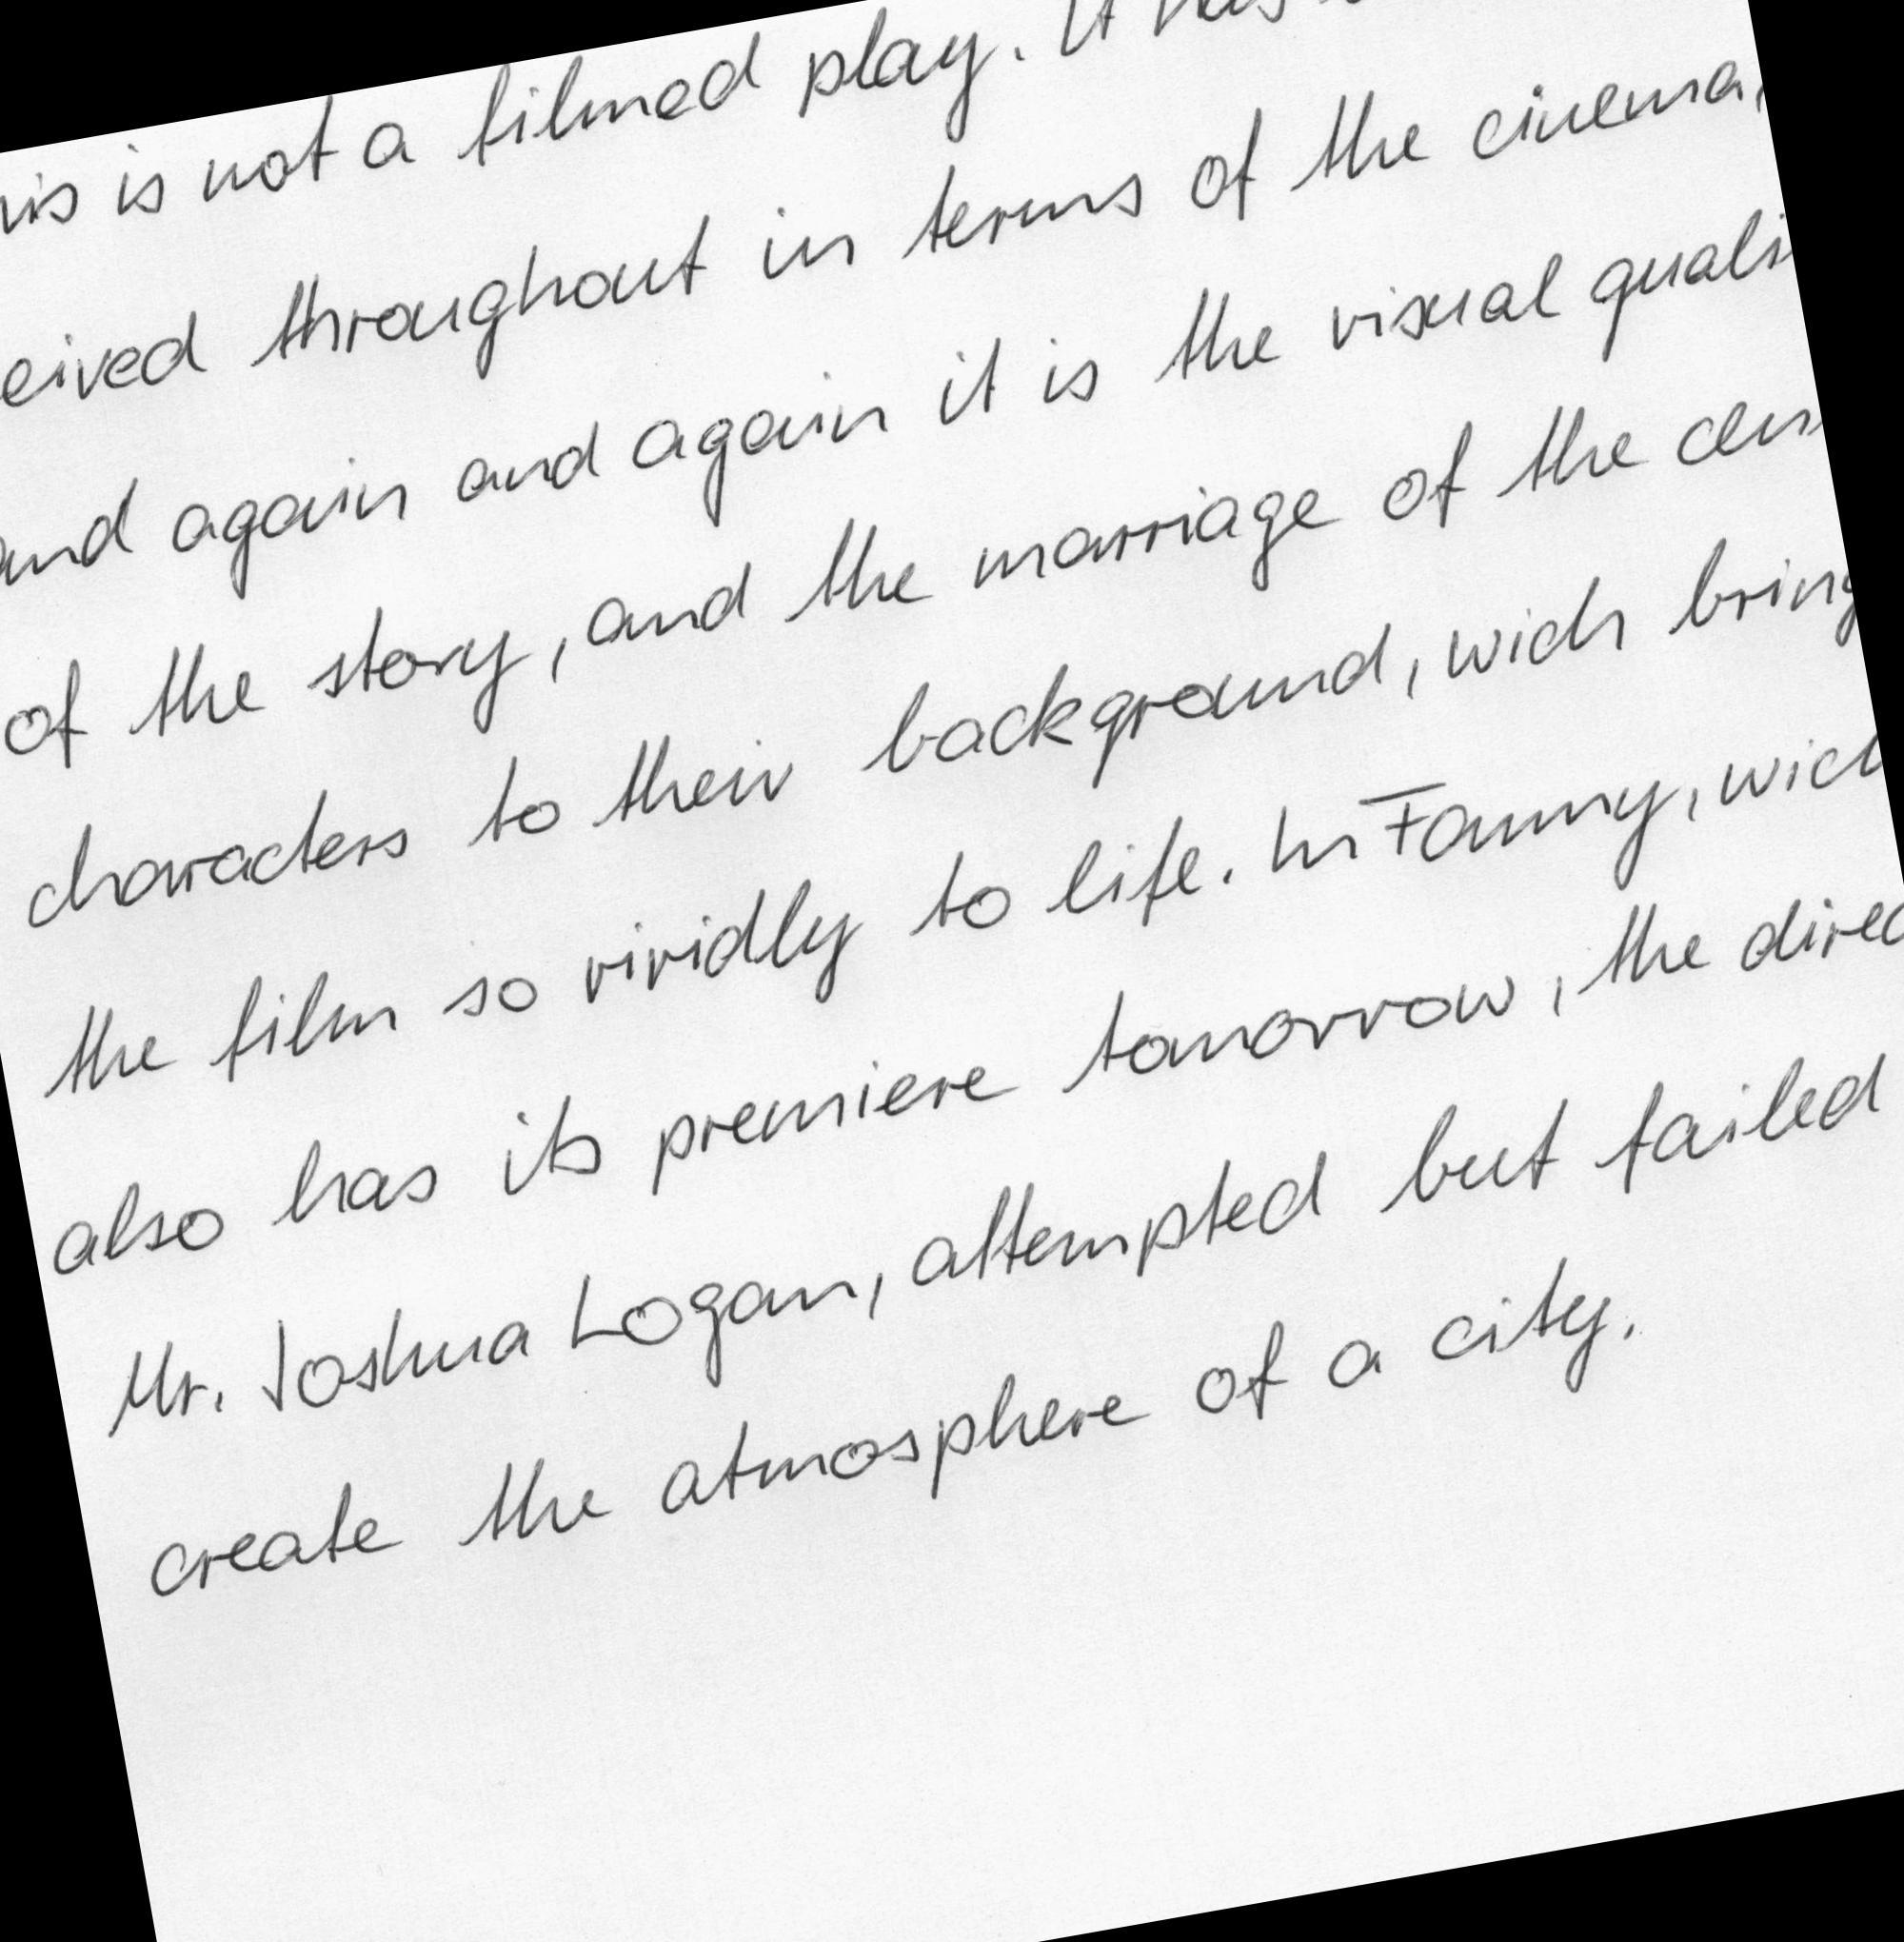 his is not a filmed play. It has
eived throughout in terms of the cinema,
and again and again it is the visual quali
of the story, and the marriage of the cen
characters to their background, wich bring
the film so vividly to life. In Fanny, wich
also has its premiere tomorrow, the direc
Mr. Joshua Logan, attempted but failed
create the atmosphere of a city.